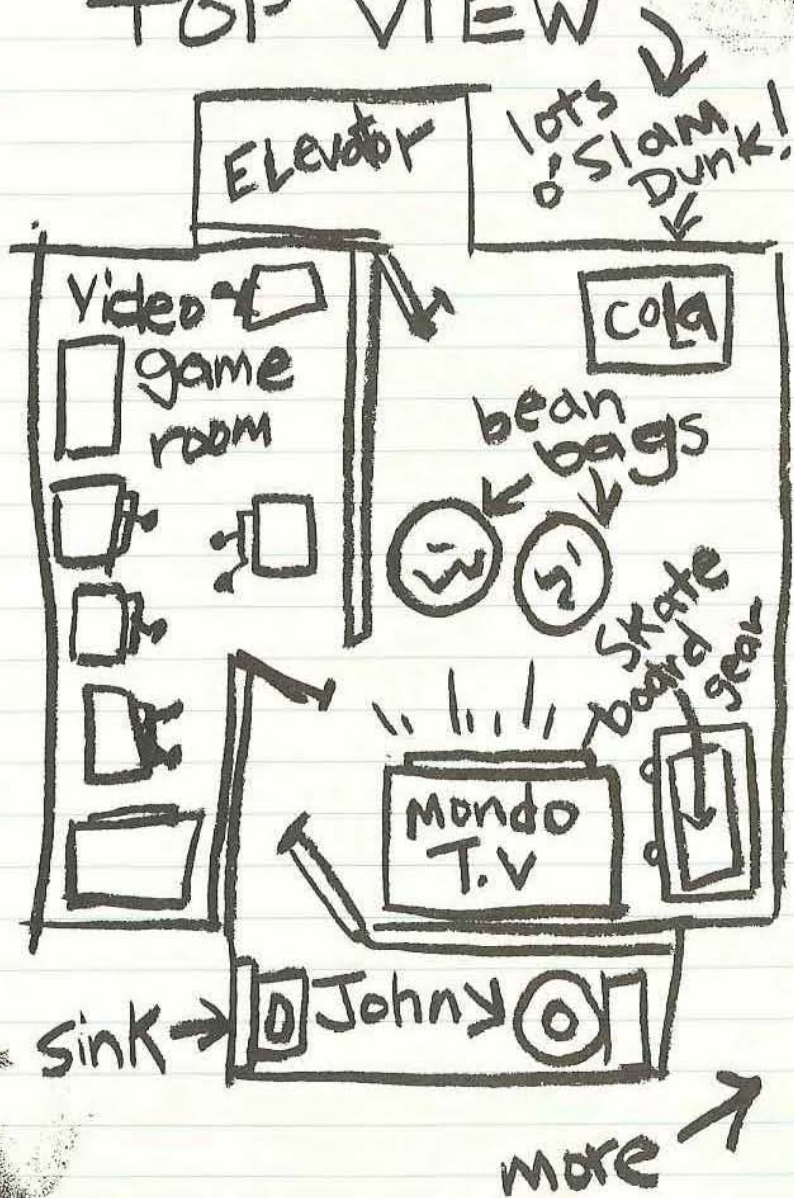 TOP VIEW
Elevator
lots
o' Slam
Dunk!
Video
game
room
cola
bean
bags
Skate
board
gear
Mondo
T.V
sink
Johny
more